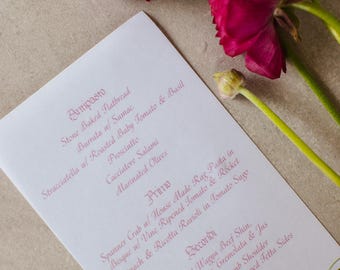 Antipasto
Stone Baked Flatbread
Burrata w/ Sumac
Stracciatella w/ Roasted Baby Tomato & Basil
Prosciutto
Cacciatore Salami
Marinated Olives
Primo
Spanner Crab w/ House Made Pasta in
Bisque w/ Vine Ripened Tomato & Rocket
& Ricotta Ravioli in Tomato Sugo
Secondi
Wagyu Beef Skin
Gremolata & Jus
Shoulder
Feta Sides